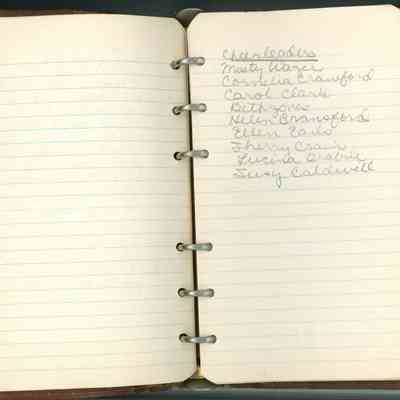 Cheerleaders
Misty Wazer
Cornelia Crawford
Carol Clark
Beth Jones
Helen Cranford
Ellen
Sherry Crain
Lucina
Susy Caldwell